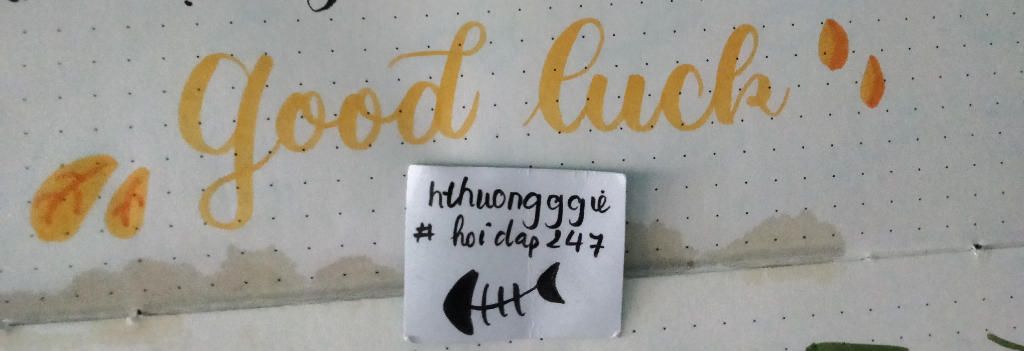 good luck
hthuongggiè
# hoidap247